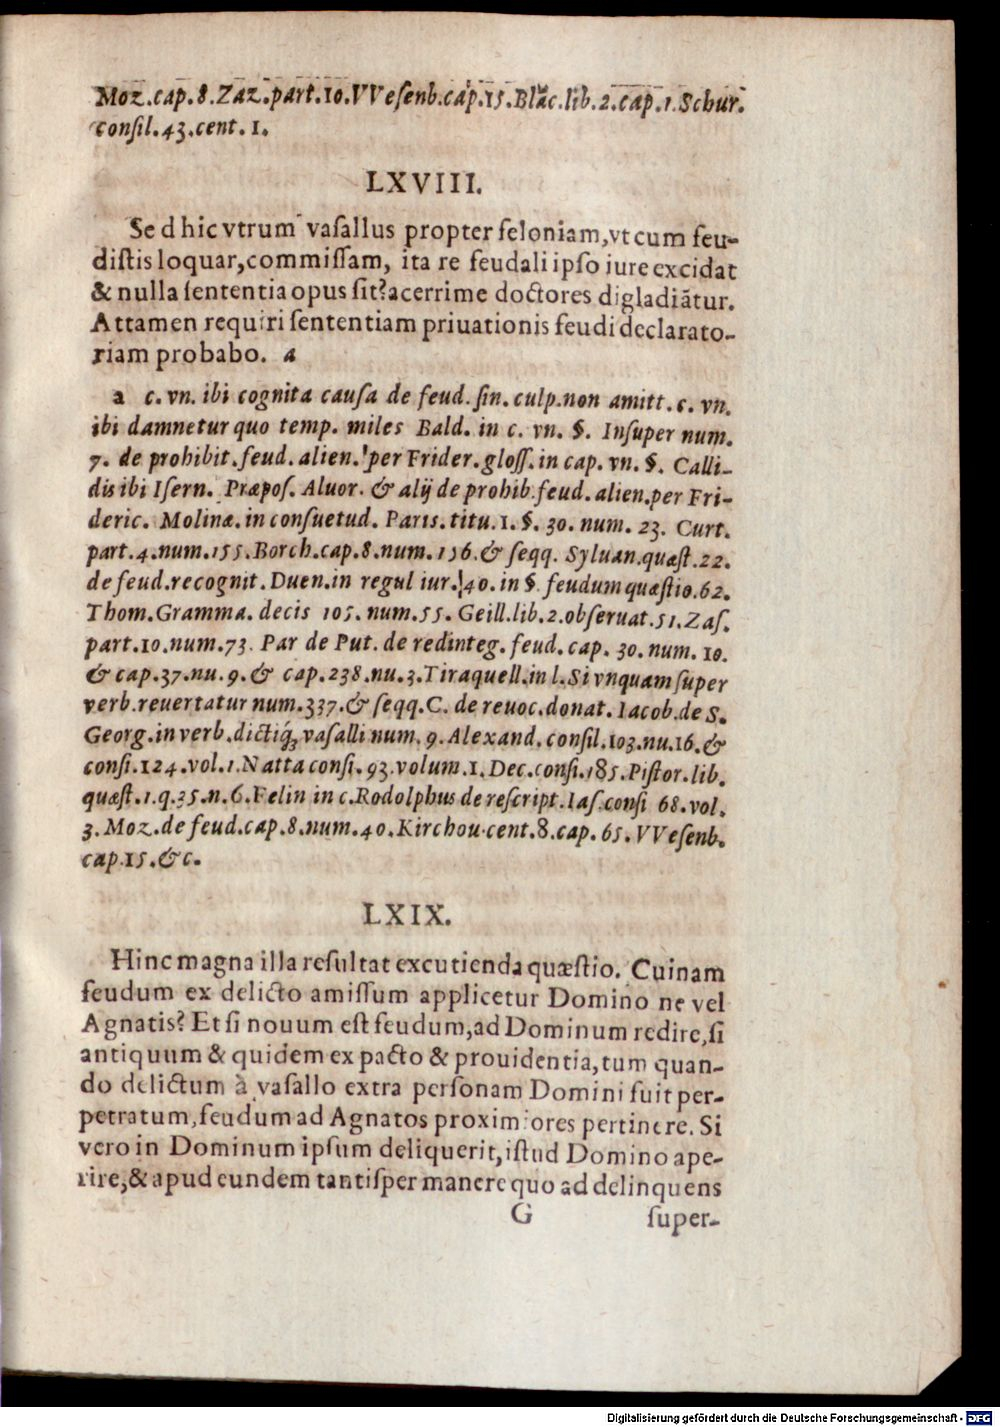 Moz.cap.8.Zaz.part.10.VVeſenb.cap.15.Blãc.lib.2.cap.1.Schur.
conſil.43.cent.1.
LXVIII.
Sed hic vtrum vaſallus propter feloniam,vt cum feu-
diſtis loquar,commiſſam, ita re feudali ipſo iure excidat
& nulla ſententia opus ſit?acerrime doctores digladiãtur.
Attamen requiri ſententiam priuationis feudi declarato-
riam probabo. a
a c. vn. ibi cognita cauſa de feud. ſin. culp.non amitt. c. vn.
ibi damnetur quo temp. miles Bald. in c. vn. §. Inſuper num.
7. de prohibit.feud. alien. per Frider.gloſſ.in cap. vn. §. Calli-
dis ibi Iſern. Præpoſ. Aluor. & alij de prohib.feud. alien.per Fri-
deric. Molinæ.in conſuetud. Paris.titu.1.§. 30. num. 23. Curt.
part.4.num.155.Borch.cap.8.num.156.& ſeqq. Syluan.quæſt.22.
de feud.recognit.Duen.in regul iur.140.in §. feudum quæſtio.62.
Thom.Gramma. decis 105. num.55. Geill.lib.2.obſeruat.51.Zaſ.
part.10.num.73. Par de Put. de redinteg. feud. cap. 30. num. 10.
& cap.37.nu.9.& cap.238.nu.3.Tiraquell.in l.Si vnquam ſuper
verb.reuertatur num.337.& ſeqq.C. de reuoc.donat.Iacob.de S.
Georg.in verb.dictiq́ꝫ vaſalli num. 9. Alexand. conſil.103.nu.16.&
conſi.124.vol.1.Natta conſi. 93.volum.1. Dec.conſi.185.Piſtor.lib.
quæſt.1.q.35.n.6.Felin in c.Rodolphus de reſcript.Iaſ.conſi 68.vol.
3. Moz.de feud.cap.8.num.40.Kirchou.cent.8.cap.65.VVeſenb.
cap.15.&c.
LXIX.
Hinc magna illa reſultat excutienda quæſtio. Cuinam
feudum ex delicto amiſſum applicetur Domino ne vel
Agnatis? Et ſi nouum eſt feudum,ad Dominum redire,ſi
antiquum & quidem ex pacto & prouidentia,tum quan-
do delictum à vaſallo extra perſonam Domini fuit per-
petratum,feudum ad Agnatos proximiores pertinere. Si
vero in Dominum ipſum deliquerit,iſtud Domino ape-
rire,& apud eundem tantiſper manere quo ad delinquens
G ſuper-
Digitalisierung gefördert durch die Deutsche Forschungsgemeinschaft - DFG